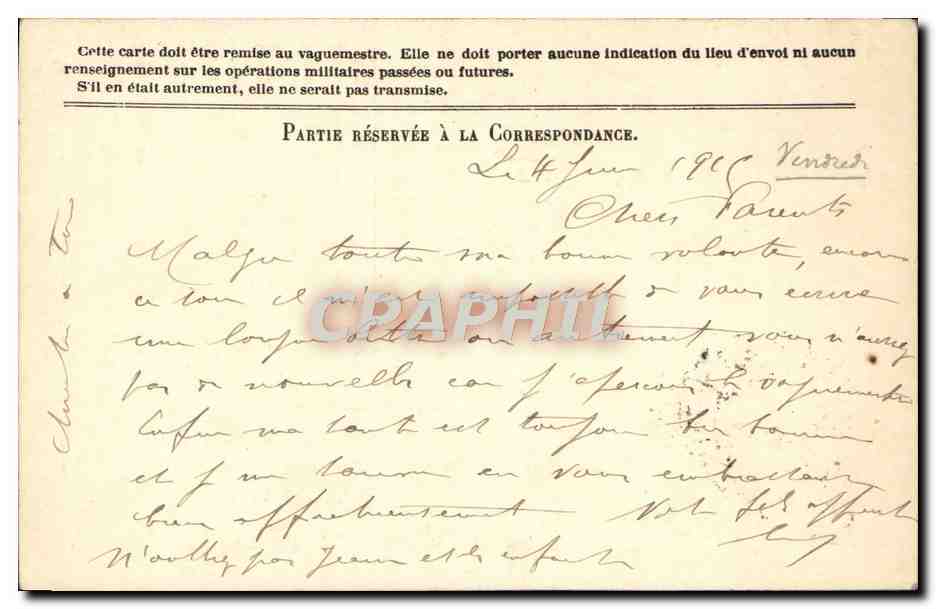 Cette carte doit être remise au vaguemestre. Elle ne doit porter aucune indication du lieu d'envoi ni aucun
renseignement sur les opérations militaires passées ou futures.
S'il en était autrement, elle ne serait pas transmise.
PARTIE RÉSERVÉE À LA CORRESPONDANCE.
Le 4 Juin 1915 Vendredi
Chers Parents
Malgré toute ma bonne volonté, encore
ce soir il m'est impossible de vous écrire
une longue lettre ou autrement vous n'aurez
pas de nouvelles car j'aperçois le vaguemestre
Enfin ma santé est toujours bonne
et je termine en vous embrassant
bien affectueusement Votre fils
N'oubliez pas Jeanne et les enfants
à tous
CPAPHIL